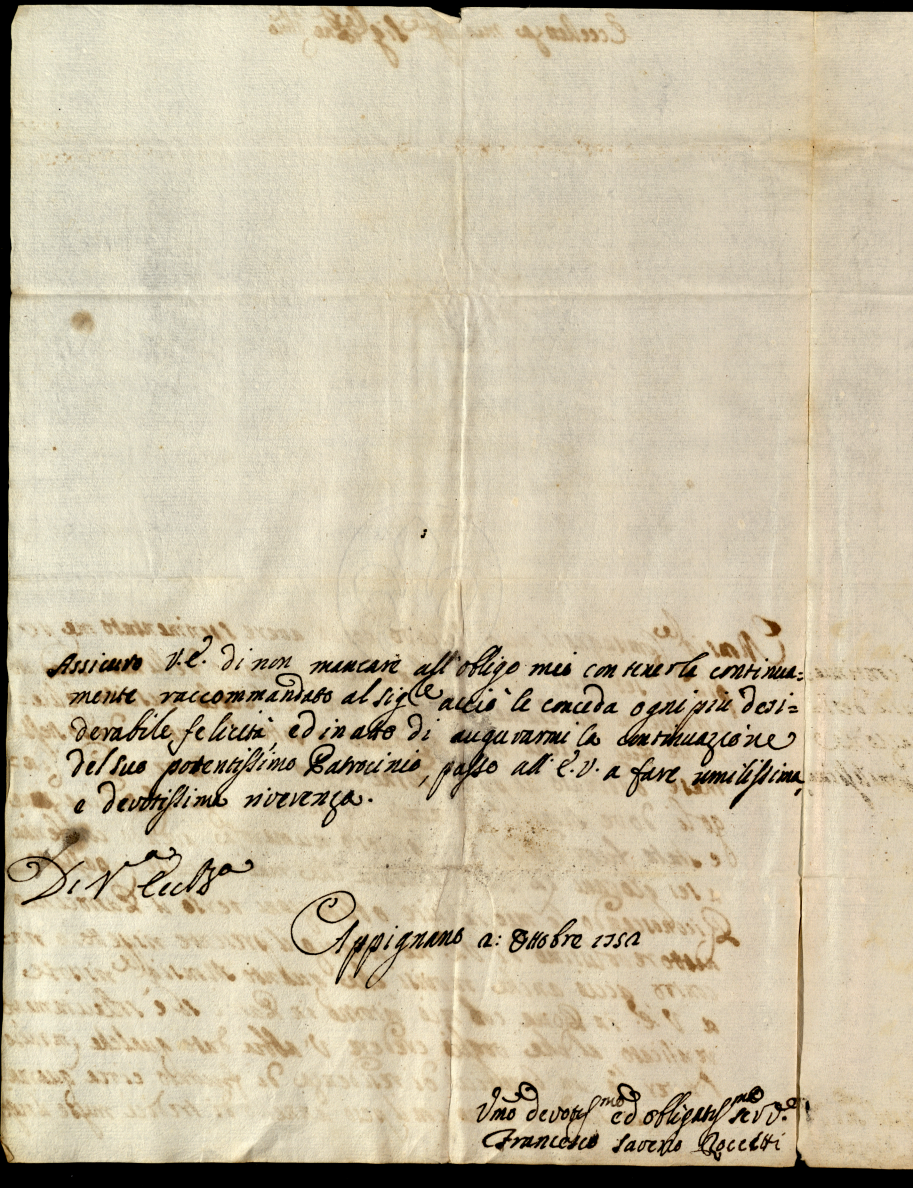 Assicuro V. E. di non mancare all'obligo mio con tenerla continua=
mente raccommandato al Sig.re acciò le conceda ogni più desi=
derabile felicità ed in atto di augurarmi la continuazione
del suo potentissimo Patrocinio, passo all'E. V. a fare umilissima,
e devotissima riverenza.
Di V.a Ecc.za
Appignano 2: Ottobre 1752
Vmo devotiss.mo ed obligatis.mo serv.e
Francesco Saverio